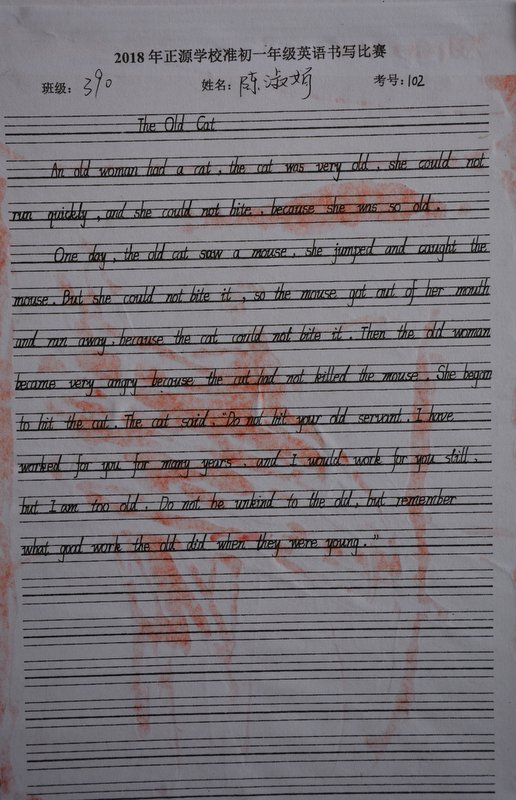 2018年正源学校准初一年级英语书写比赛
班级：390 姓名：陈淑妍 考号：102
The Old Cat
An old woman had a cat . the cat was very old . she could not
run quickly , and she could not bite . because she was so old .
One day , the old cat saw a mouse . she jumped and caught the
mouse . But she could not bite it , so the mouse got out of her mouth
and ran away . because the cat could not bite it . Then the old woman
became very angry because the cat had not killed the mouse . She began
to hit the cat . The cat said . "Do not hit your old servant . I have
worked for you for many years . and I would work for you still ,
but I am too old . Do not be unkind to the old , but remember
what good work the old did when they were young . "